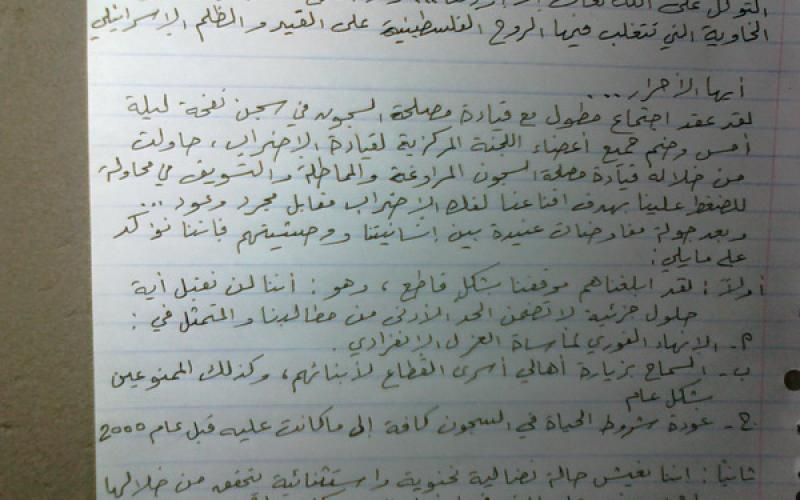 التوكل على الله
الخاوية التي تتغلب فيها الروح الفلسطينية على القيد والظلم الإسرائيلي
أيها الأحرار ....
لقد عقد اجتماع مطول مع قيادة مصلحة السجون في سجن نفحة ليلة
أمس وضم جميع أعضاء اللجنة المركزية لقيادة الإضراب، حاولت
من خلاله قيادة مصلحة السجون المراوغة والمماطلة والتسويف في محاولة
للضغط علينا بهدف اقناعنا لفك الإضراب مقابل مجرد وعود ...
وبعد جولة مفاوضات عنيدة بين إنسانيتنا ووحشيتهم فإننا نؤكد
على مايلي:
أولاً: لقد أبلغناهم موقفنا بشكل قاطع، وهو: أننا لن نقبل أية
حلول جزئية لا تضمن الحد الأدنى من مطالبنا والمتمثل في:
أ- الإنهاء الفوري لمأساة العزل الإنفرادي.
ب- السماح بزيارة أهالي أسرى القطاع لأبنائهم، وكذلك الممنوعين
بشكل عام
ج- عودة شروط الحياة في السجون كافة إلى ماكانت عليه قبل عام 2000
ثانياً: إننا نعيش حالة نضالية نخبوية واستثنائية يتحقق من خلالها